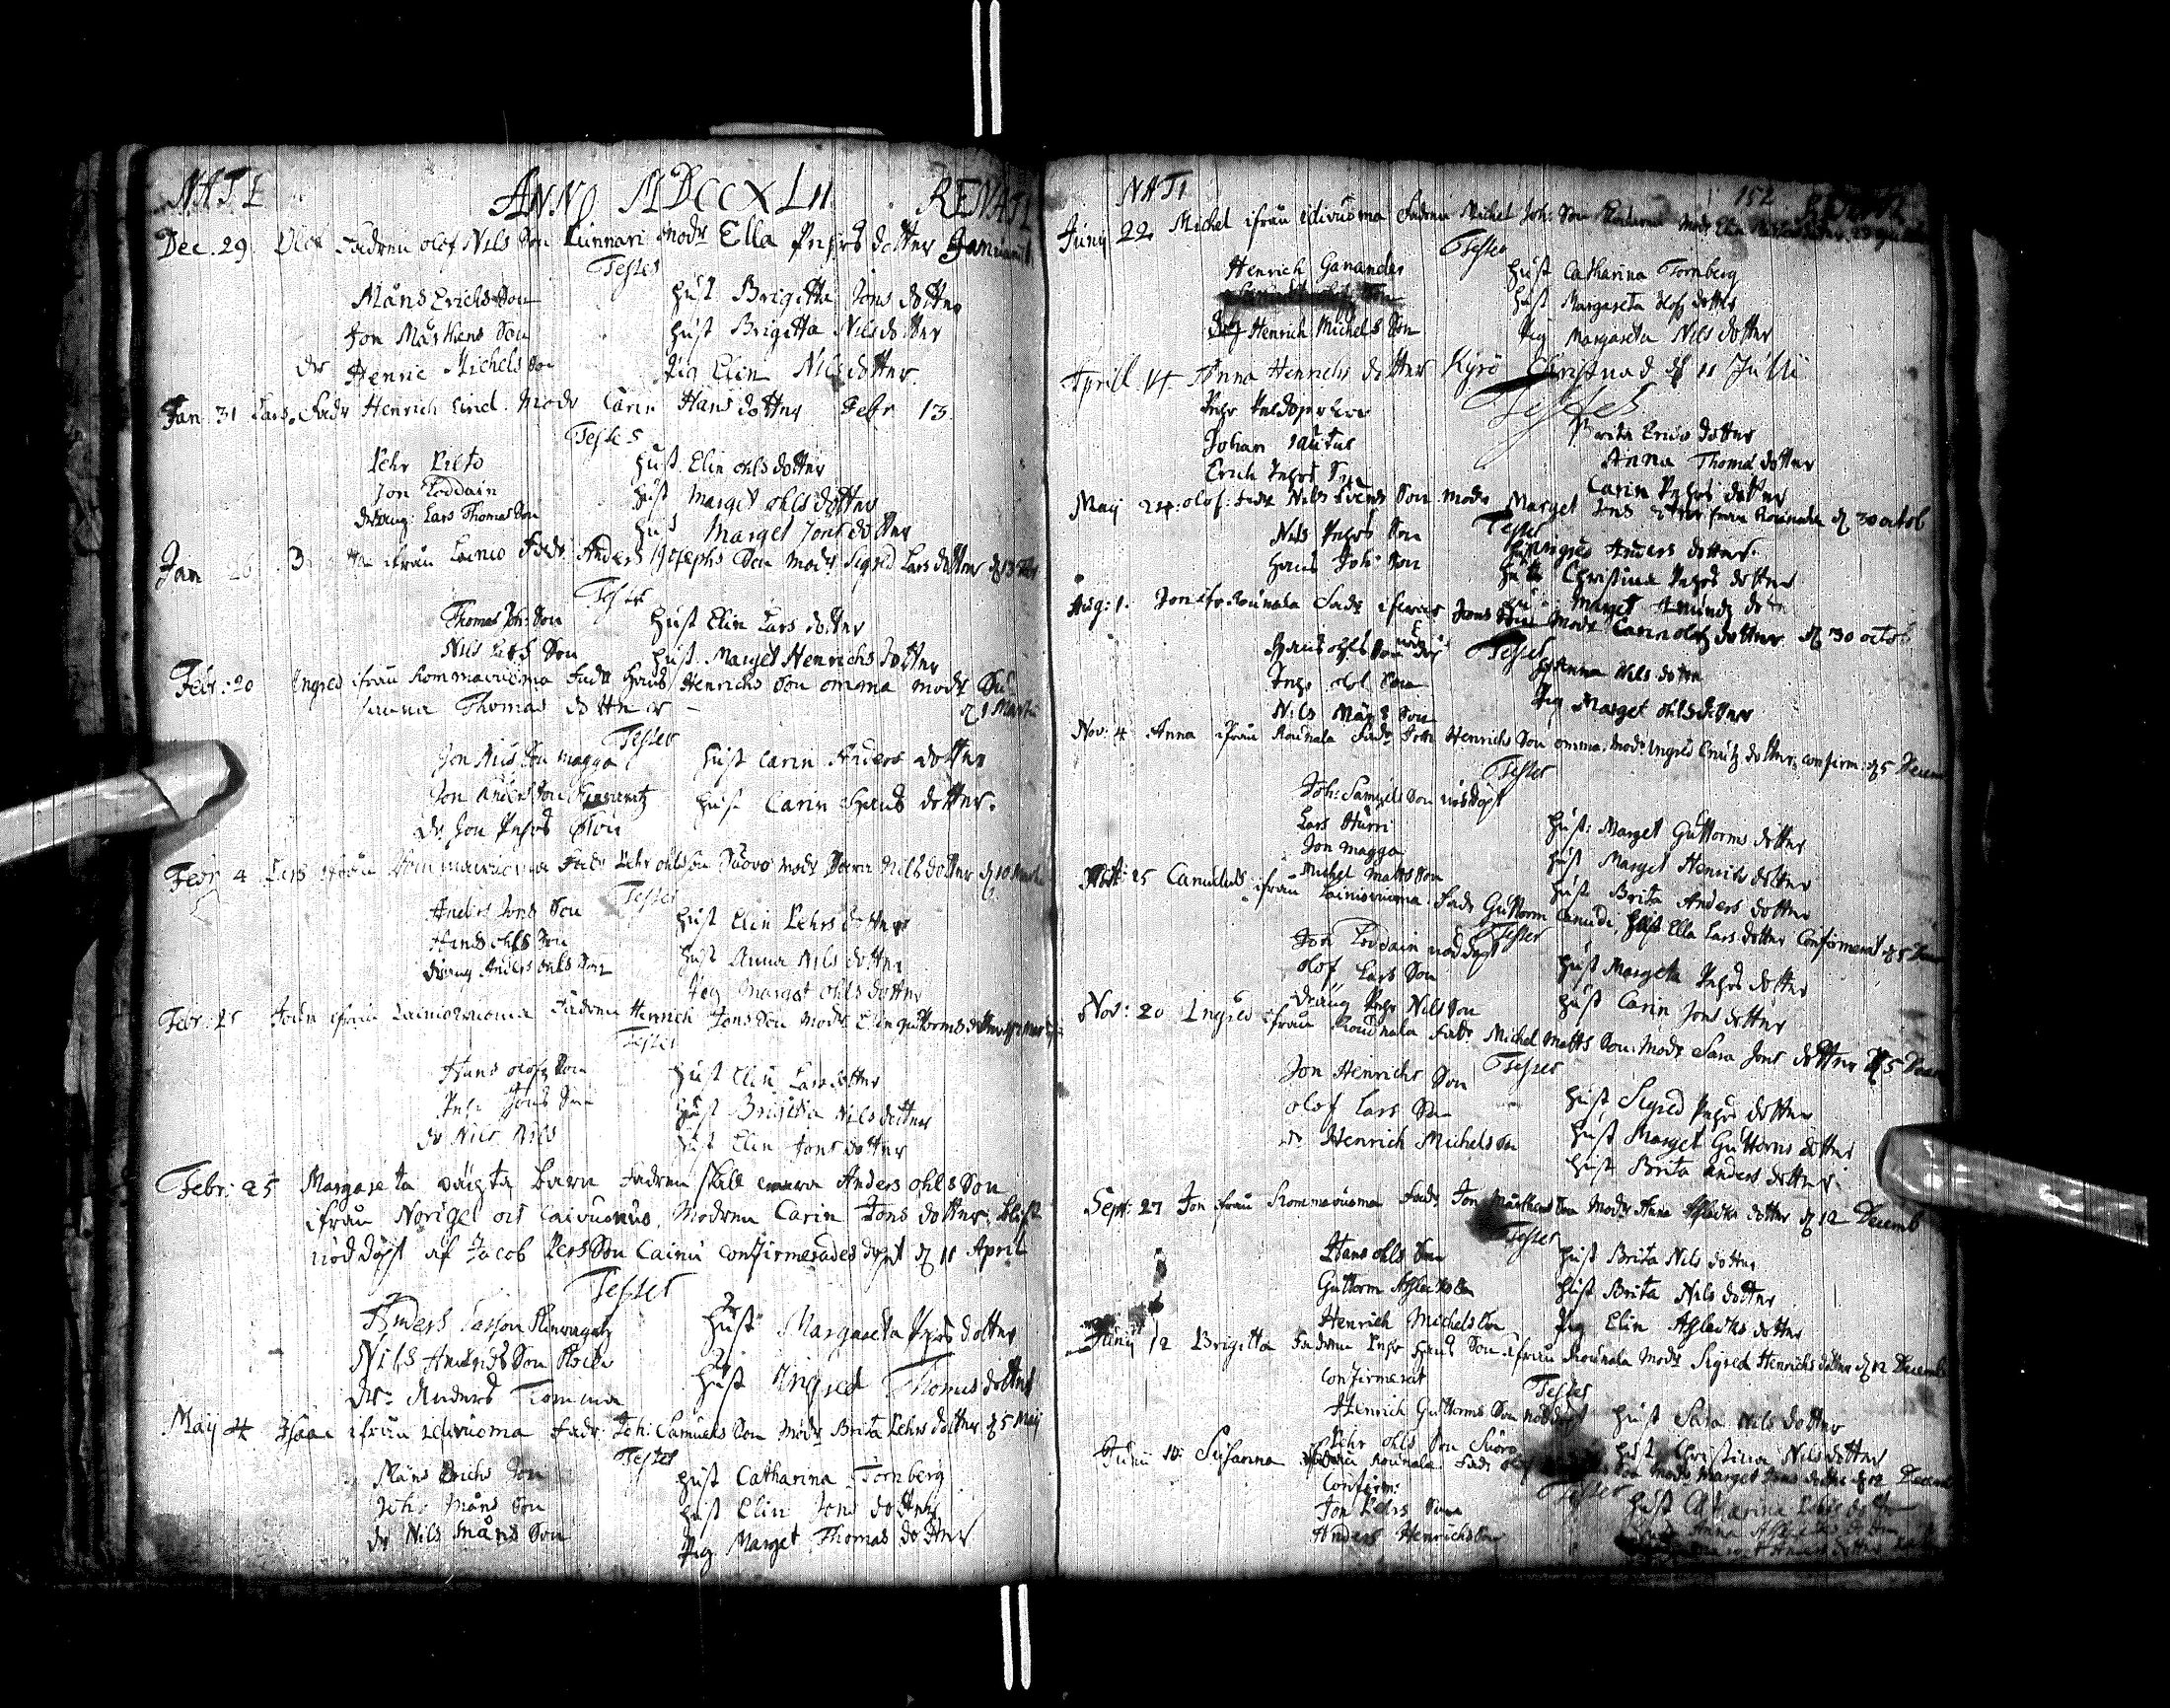 NATI ANNO MDCCXLII RENATI
Dec. 29 Olof Fadren olof Nils Son Kunnari modr Ella Pehrs dotter Januarii
Testes
Måns Erichs Son hust Brigitta Jons dotter
Jon Mårthens Son hust Brigitta Nils dotter
dr Henric Michels Son Pig Elin Nils dotter
Jan 31 Lars, Fadr Henrich Lind. Modr Carin Hans dotter Febr 13.
Testes
Pehr Pilto hust Elin ohls dotter
Jon Poddain hust Marget ohls dotter
dräng Lars Thomas Son hust Marget Jons dotter
Jan 26 ifrån Lainio Fadr Anders Josephs Son modr Sigred Lars dotter
Testes
Thomas Joh: Son hust Elin Lars dotter
Nils Lars Son hust Marget Henrichs dotter
Febr: 20 Ingred ifrån Rommavuoma Fadr Hans Henrichs Son omma modr Su
sanna Thomas dotter d 1 Martii
Testes
Jon Nils Son magga hust Carin Anders dotter
Jon Anders Son hust Carin Hans dotter.
dr Jon Pehrs Son
Febr 4 Lars ifrån Rommavuoma Fadr Pehr ohls Son Suoro modr Sara Nils dotter
Testes
Anders Jons Son hust Elin Pehrs dotter
Hans ohls Son hust Anna Nils dotter
dräng Anders ohls Son Pig Marget ohls dotter
Febr: 25 ifrån Lainiovuoma Fadren Henrich Jons Son modr Elin guttorms dotter
Testes
Hans olofz Son hust Elin Lars dotter
Pehr Jons Son hust Brigitta Nils dotter
dr Nils Nils hust Elin Jons dotter
Febr: 25 Margareta oächta barn Fadren skall wara Anders ohls Son
ifrån Norige ort Caivuonus, Modren Carin Jons dotter, blef
nöddöpt af Jacob Pers Son Cainu confirmerades dopet d 11 April
Testes
Anders Larsson hust Margareta Pehrs dotter
Nils Amunds Son hust Ingred Thomas dotter
dr Anders Tomma
May 4 Isaac ifrån idivuoma Fadr: Joh: Samuels Son Modr Brita Pehrs dotter d 5 Maij
Testes
Måns Erichs Son hust Catharina Tornberg
Joh: Måns Son hust Elin Jons dotter
dr Nils Måns Son Pig Marget Thomas dotter
NATI 152 RENATI
Junij 22 Michel ifrån idivuoma Fadren Michel Joh: Son modr Ella
Testes
Henrich Ganander hust Catharina Tornberg
hust Margareta olofz dotter
Henrich Michels Son Pig Margareta Nils dotter
Aprill 14 Anna Henrichs dotter Kyrö Christnad d 11 Julii
Testes
Pehr Brita Erics dotter
Johan Anna Thomæ dotter
Erich Pehrs Son Carin Pehrs dotter
May 24. olof. Fadr Nils Svens Son modr Marget Jons dotter ifrån Rounala d 30 octob
Testes
Nils Pehrs Son hust Sigred Anders dotter.
Hans Joh: Son hust Christina Pehrs dotter
Marget Amundz dotter
Aug: 1. Jon ifr. Rounala Fadr Jons Son Modr Carin olofz dotter d 30 octob
Testes
Hans ohls Son hust Anna Nils dotter
Pehr ohl Son Pig Marget ohls dotter
Nils Måns Son
Nov: 4 Anna ifrån Rounala Fadr Jon Henrichs Son omma. Modr Ingred Cnutz dotter, confirm: d 5 Decem
Testes
Joh: Samuels Son nöddöpt hust: Marget Guttorms dotter
Lars Hurri hust Marget Henrichs dotter
Jon magga hust Brita Anders dotter
Michel Matts Son
25 Canutus ifrån Lainiovuoma Fadr Guttorm Canuti, hust Ella Lars dotter Confirmerat d 5
Testes
Jon Poddain nöddöpt hust Margeta Pehrs dotter
olof Lars Son hust Carin Jons dotter
dräng Pehr Nils Son
Nov: 20 Ingred ifrån Rounala Fadr Michel Matts Son. Modr Sara Jons dotter d 5
Testes
Jon Henrichs Son hust Sigred Pehrs dotter
olof Lars Son hust Marget Guttorms dotter
dr Henrich Michels Son hust Brita Anders dotter
Sept: 27 Jon ifrån Rommavuoma Fadr Jon Mårthens Son Modr Anna Aslacks dotter d 12 Decemb
Testes
Hans ohls Son hust Brita Nils dotter
Guttorm Aslacks Son hust Brita Nils dotter
Henrich Michels Son Pig Elin Aslachs dotter
Junij 12 Brigitta Fadren Pehr Hans Son ifrån Rounala Modr Sigred Henrichs dotter d 12 Decemb
Confirmerat
Testes
Henrich Guttorms Son nöddöpt hust Sara Nils dotter
Pehr ohls Son Suoro hust Christina Nils dotter
Junii 10: Susanna ifrån Rounala Fadr modr Marget Jons dotter d 12 Decemb
Confirm: Testes
Jon Pehrs Son hust Catharina Lars dotter
Anders Henrichs Son Anna Aslachs dotter